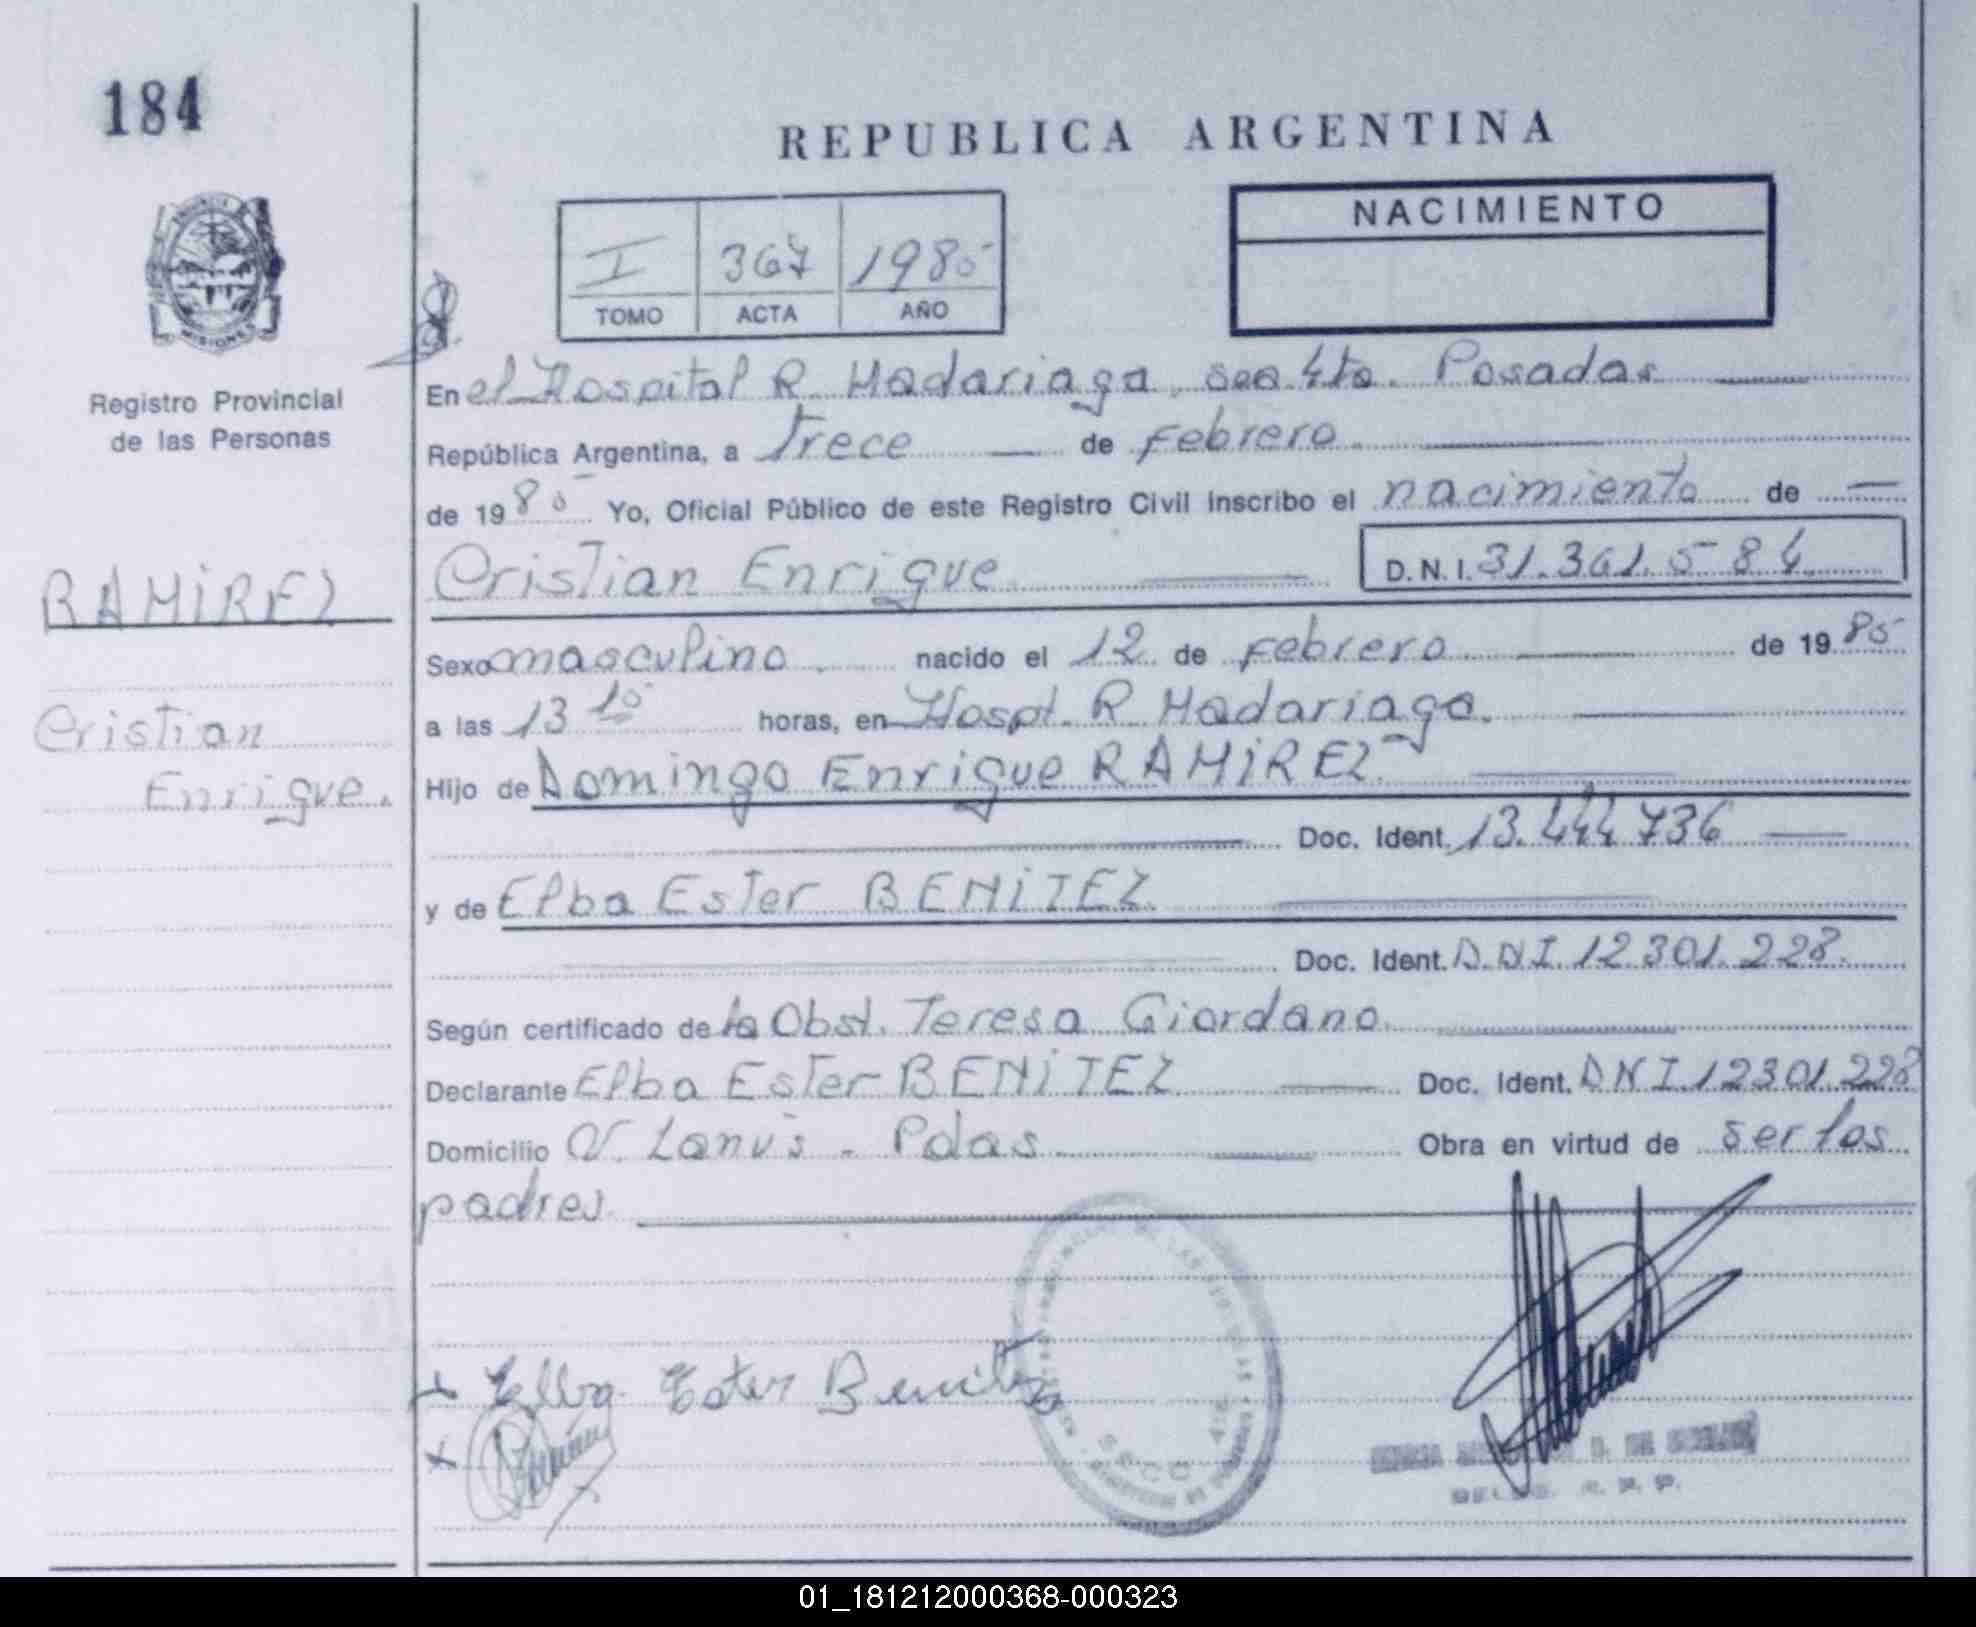 184
REPUBLICA ARGENTINA
NACIMIENTO
I 367 1985
TOMO ACTA AÑO
MISIONES
Registro Provincial
de las Personas
En el Hospital R. Madariaga, Secc 4ta. Posadas
República Argentina, a Trece de Febrero
de 1985 Yo, Oficial Público de este Registro Civil Inscribo el nacimiento de
RAMIREZ
Cristian Enrique D.N.I. 31.361.584
Sexo masculino. nacido el 12 de Febrero de 1985
Cristian
Enrique.
a las 13 10 horas, en Hospt. R. Madariaga.
Hijo de Domingo Enrique RAMIREZ.
Doc. Ident. 13.444.736
y de Elba Ester BENITEZ
Doc. Ident. D.N.I. 12.301.228.
Según certificado de la Obst. Teresa Giordano.
Declarante Elba Ester BENITEZ Doc. Ident. DNI 12301.228
Domicilio V. Lanús - Pdas Obra en virtud de ser los
padres.
Elba Ester Benitez
01_181212000368-000323